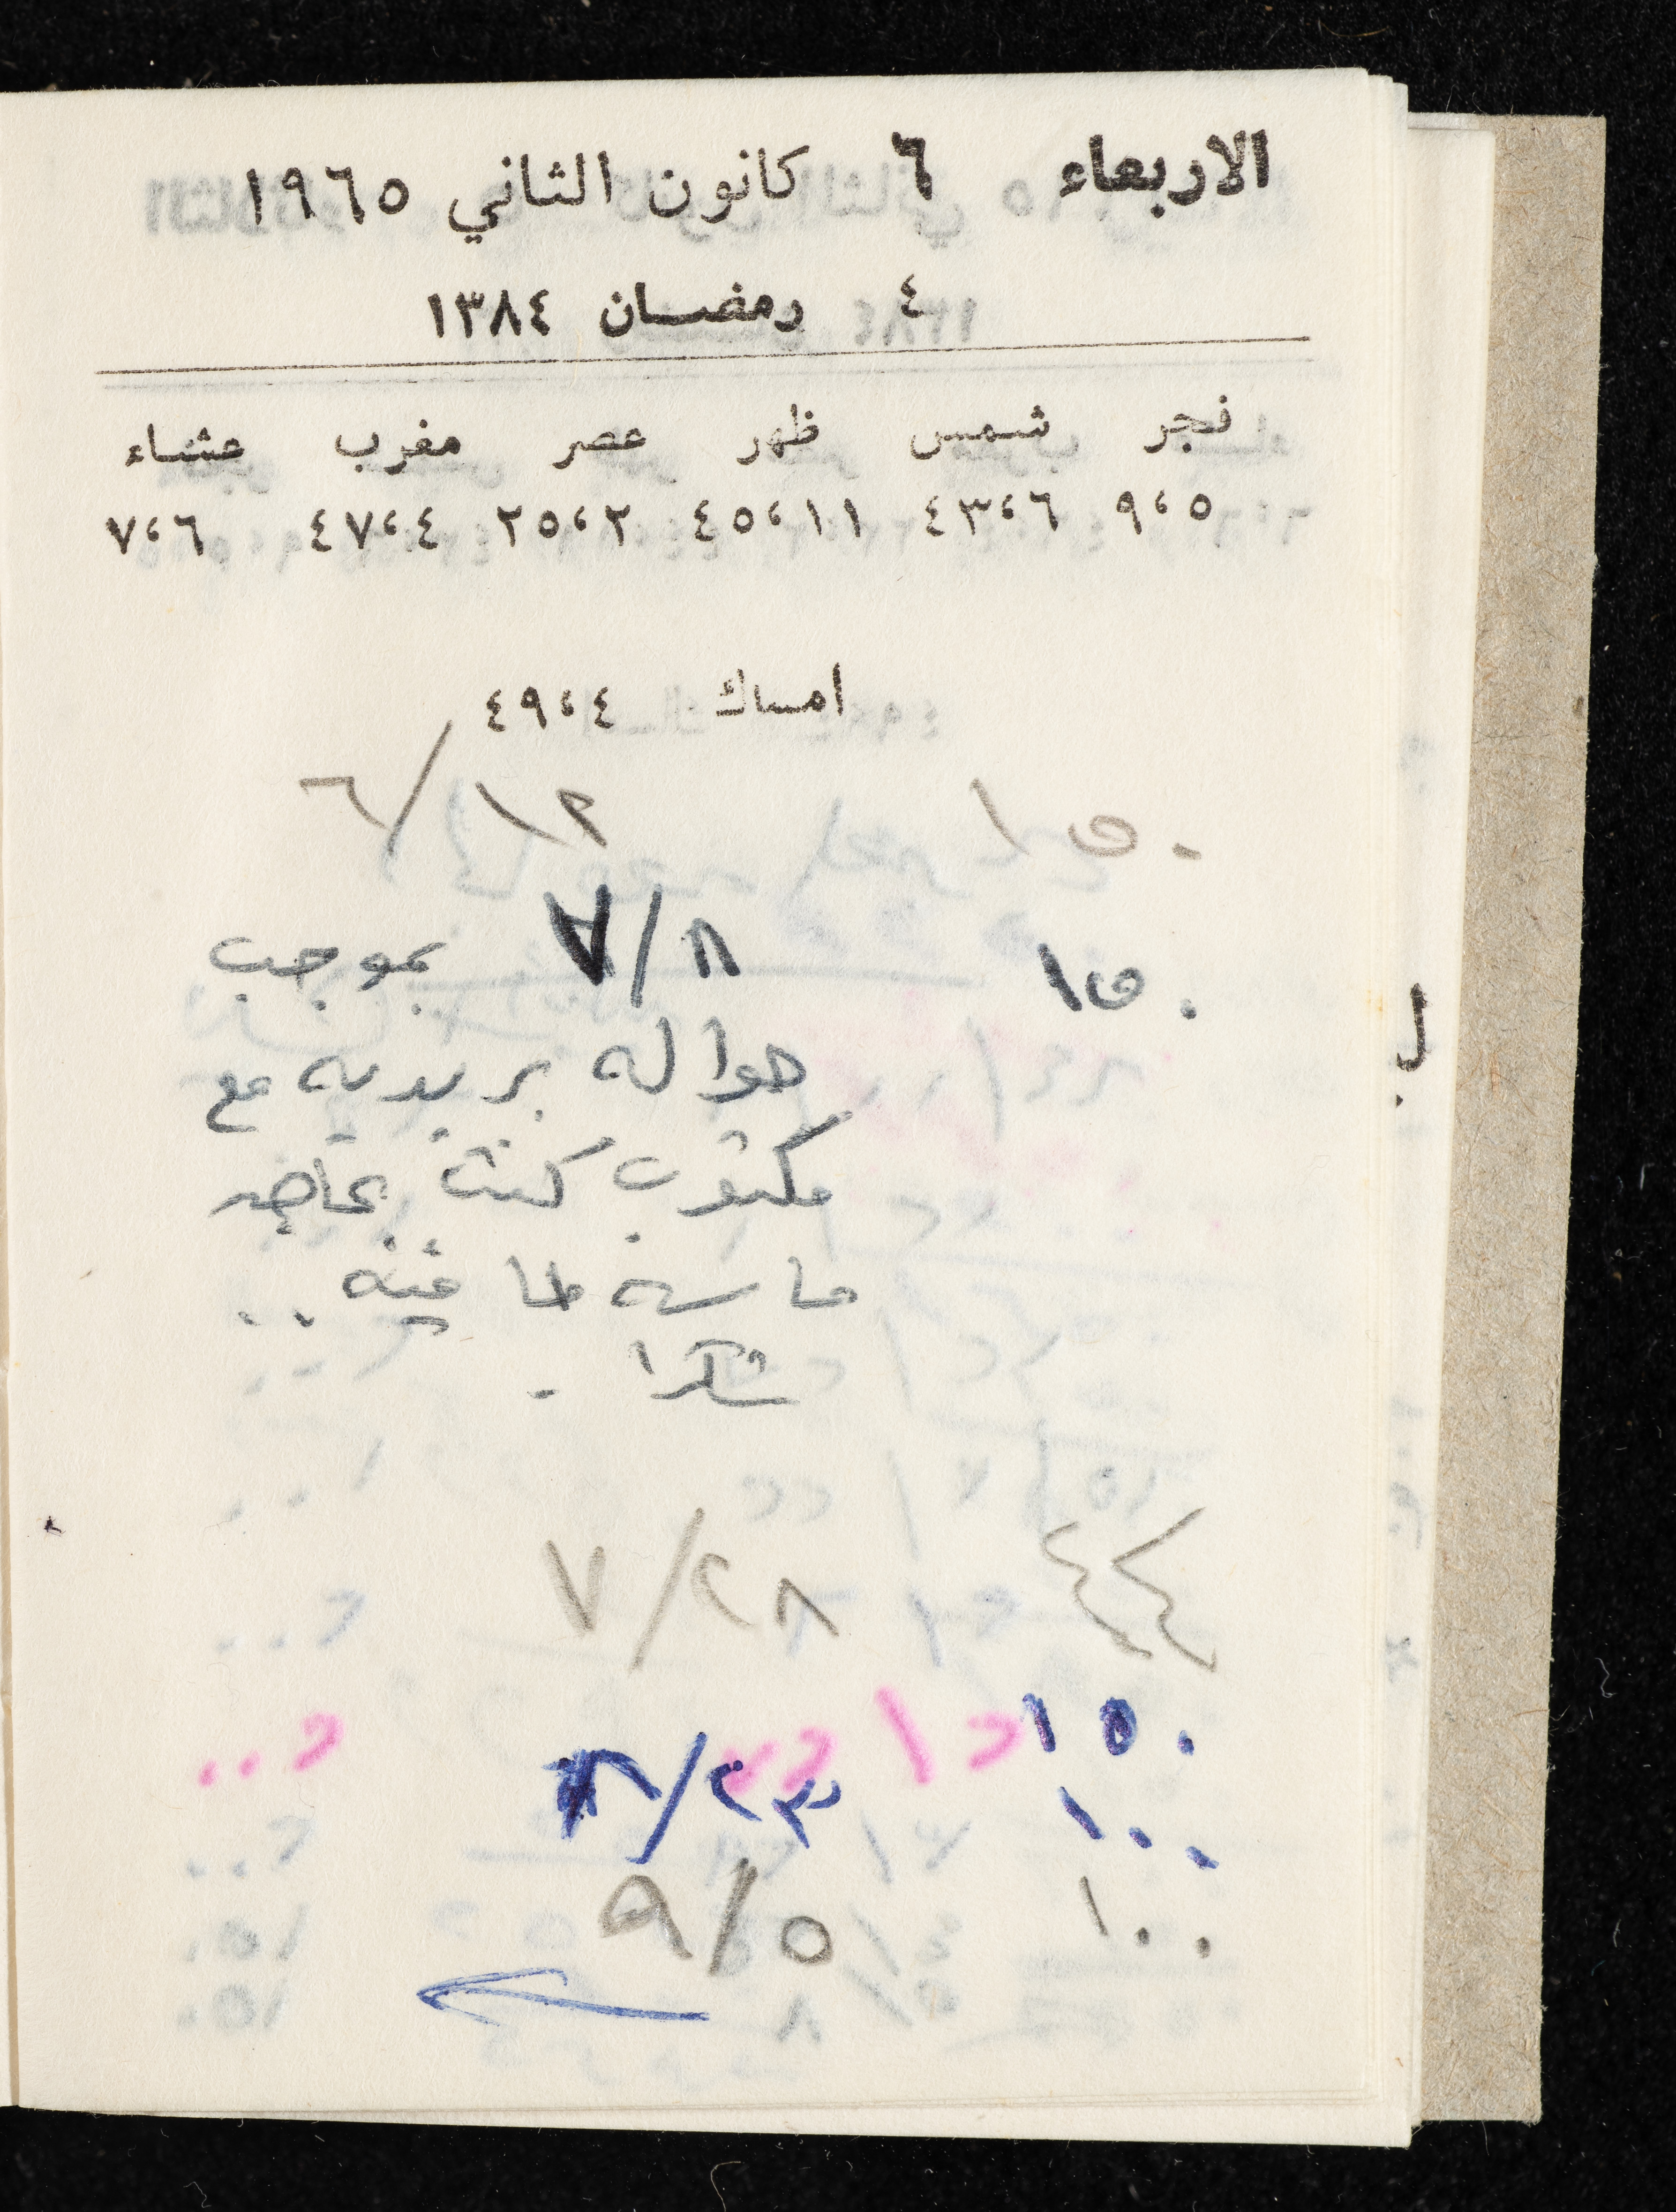 الاربعاء ٦ كانون الثاني ١٩٦٥
٤ رمضان ١٣٨٤
فجر شمس ظهر عصر مغرب عشاء
٩،٥ ٤٣،٦ ٤٥،١١ ٢٥،٢ ٤٧،٤ ٧،٦
امساك ٤٩،٤
١٥٠ ٦/١٢
١٥٠ ٧/٨ بموجب
حواله بريديه مع
مكتوب كنت بحاجه
ماسه لما فيه..
شكرا .
٤٤ ٧/٢٨
١٥٠
٨/٢٣
١٠٠
١٠٠ ٩/٥